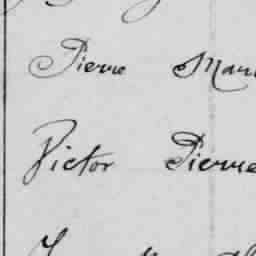 Pierre Mari
Victor Pierre